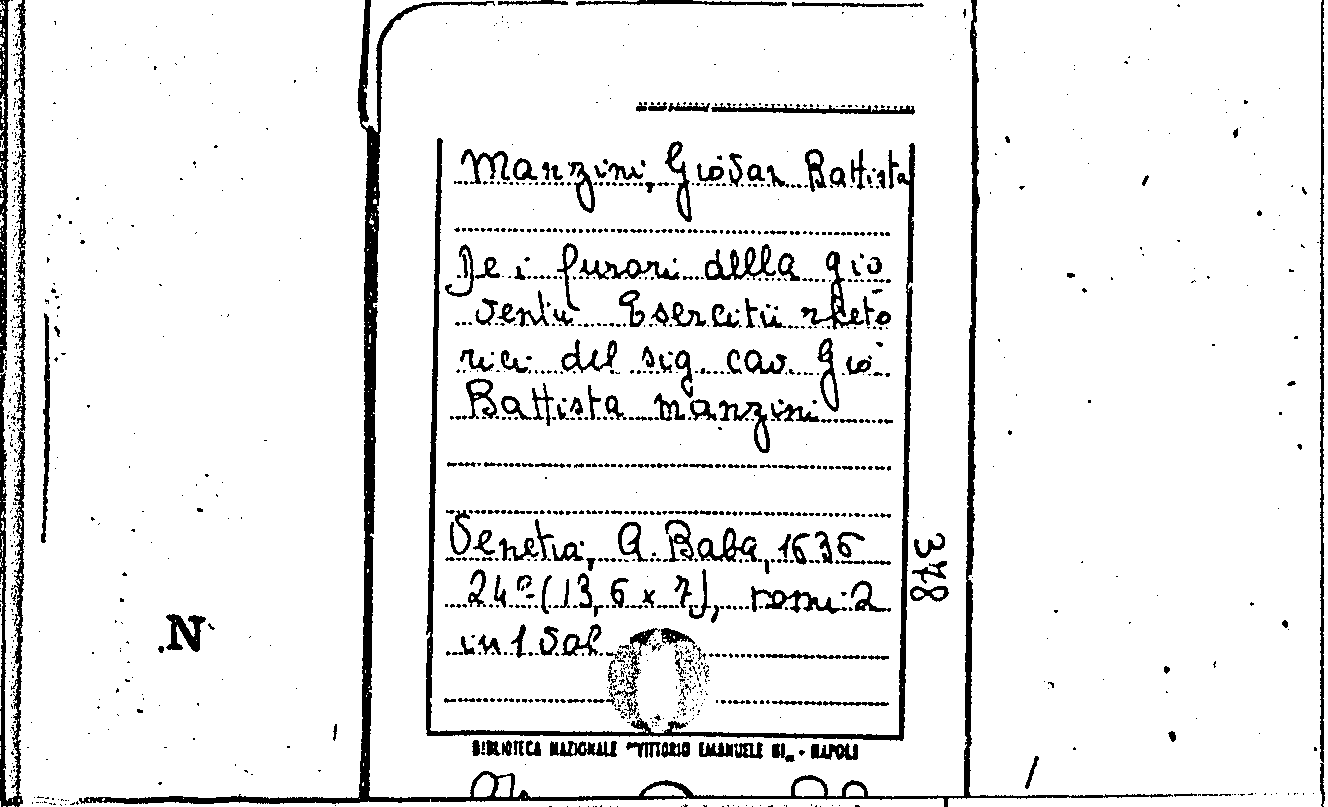 Manzini, Giovan Battista
De i furori della gio
ventù Esercitii rheto
rici del sig. cav. Gio.
Battista Manzini
Venetia, A. Baba, 1636
24º (13,6 x 7), tomi 2
in 1 vol.
378
N
BIBLIOTECA NAZIONALE "VITTORIO EMANUELE III" - NAPOLI